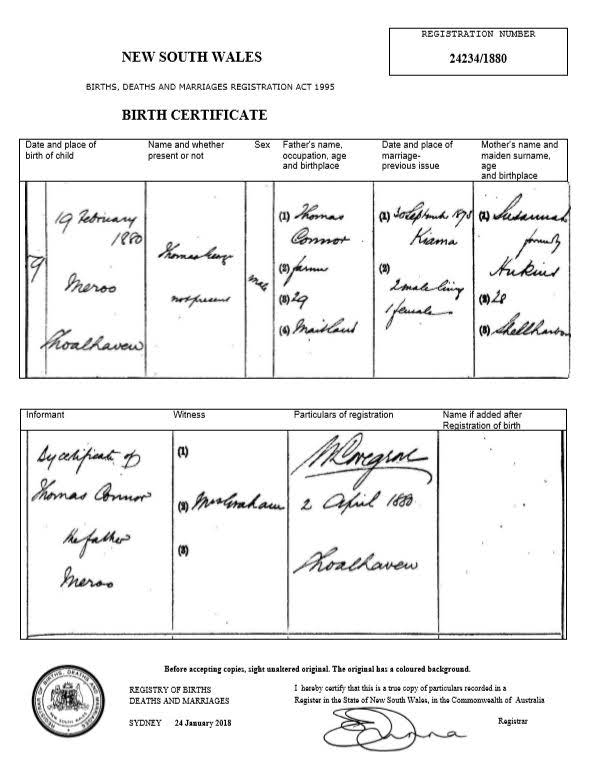 REGISTRATION NUMBER
24234/1880
NEW SOUTH WALES
BIRTHS, DEATHS AND MARRIAGES REGISTRATION ACT 1995
BIRTH CERTIFICATE
Date and place of
birth of child
Name and whether
present or not
Sex
Father's name,
occupation, age
and birthplace
Date and place of
marriage-
previous issue
Mother's name and
maiden surname,
age
and birthplace
9
19 February
1880
Meroo
Shoalhaven
Thomas George
not present
male
(1) Thomas
Connor
(2) farmer
(3) 29
(4) Maitland
(1) September 187
Kiama
(2)
2 male living
1 female
(1) Susannah
formerly
(2) 28
(3) Shellharbour
Informant
Witness
Particulars of registration
Name if added after
Registration of birth
By certificate of
Thomas Connor
the father
Meroo
(1)
(2) Mrs Graham
(3)
2 April 1880
Shoalhaven
Before accepting copies, sight unaltered original. The original has a coloured background.
REGISTRY OF BIRTHS
DEATHS AND MARRIAGES
SYDNEY 24 January 2018
I hereby certify that this is a true copy of particulars recorded in a
Register in the State of New South Wales, in the Commonwealth of Australia
Registrar
REGISTRAR OF BIRTHS, DEATHS AND MARRIAGES
NEW SOUTH WALES